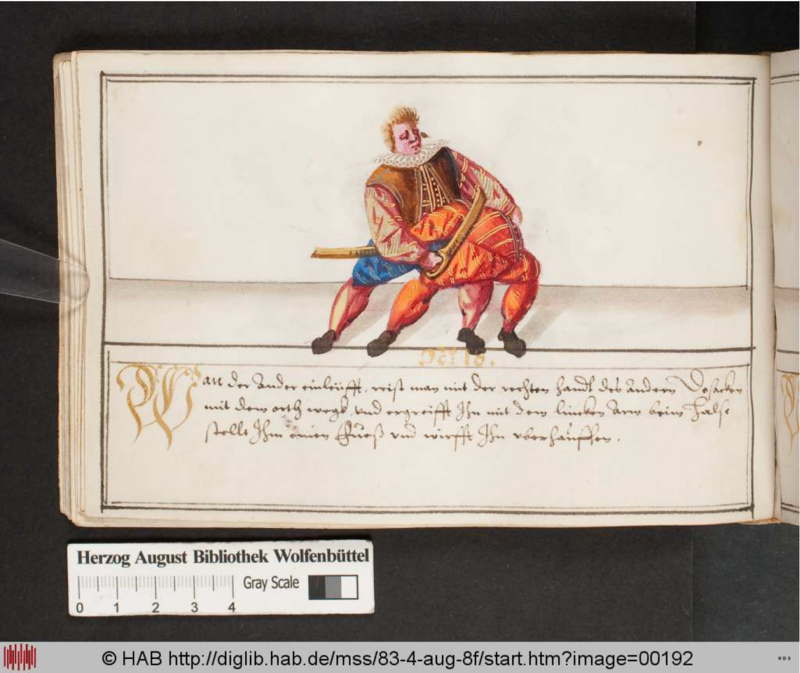 No: 18.
Wan der Ander einleüfft, reist man mit der rechten handt des andern Dosacken
mit dem orth wegk, vnd ergreifft Ihn mit dem lincken Arm beim Halse
stellt Ihm einen Fueß vnd wirfft Ihn vberhauffen.
Herzog August Bibliothek Wolfenbüttel
Gray Scale
0 1 2 3 4
© HAB http://diglib.hab.de/mss/83-4-aug-8f/start.htm?image=00192